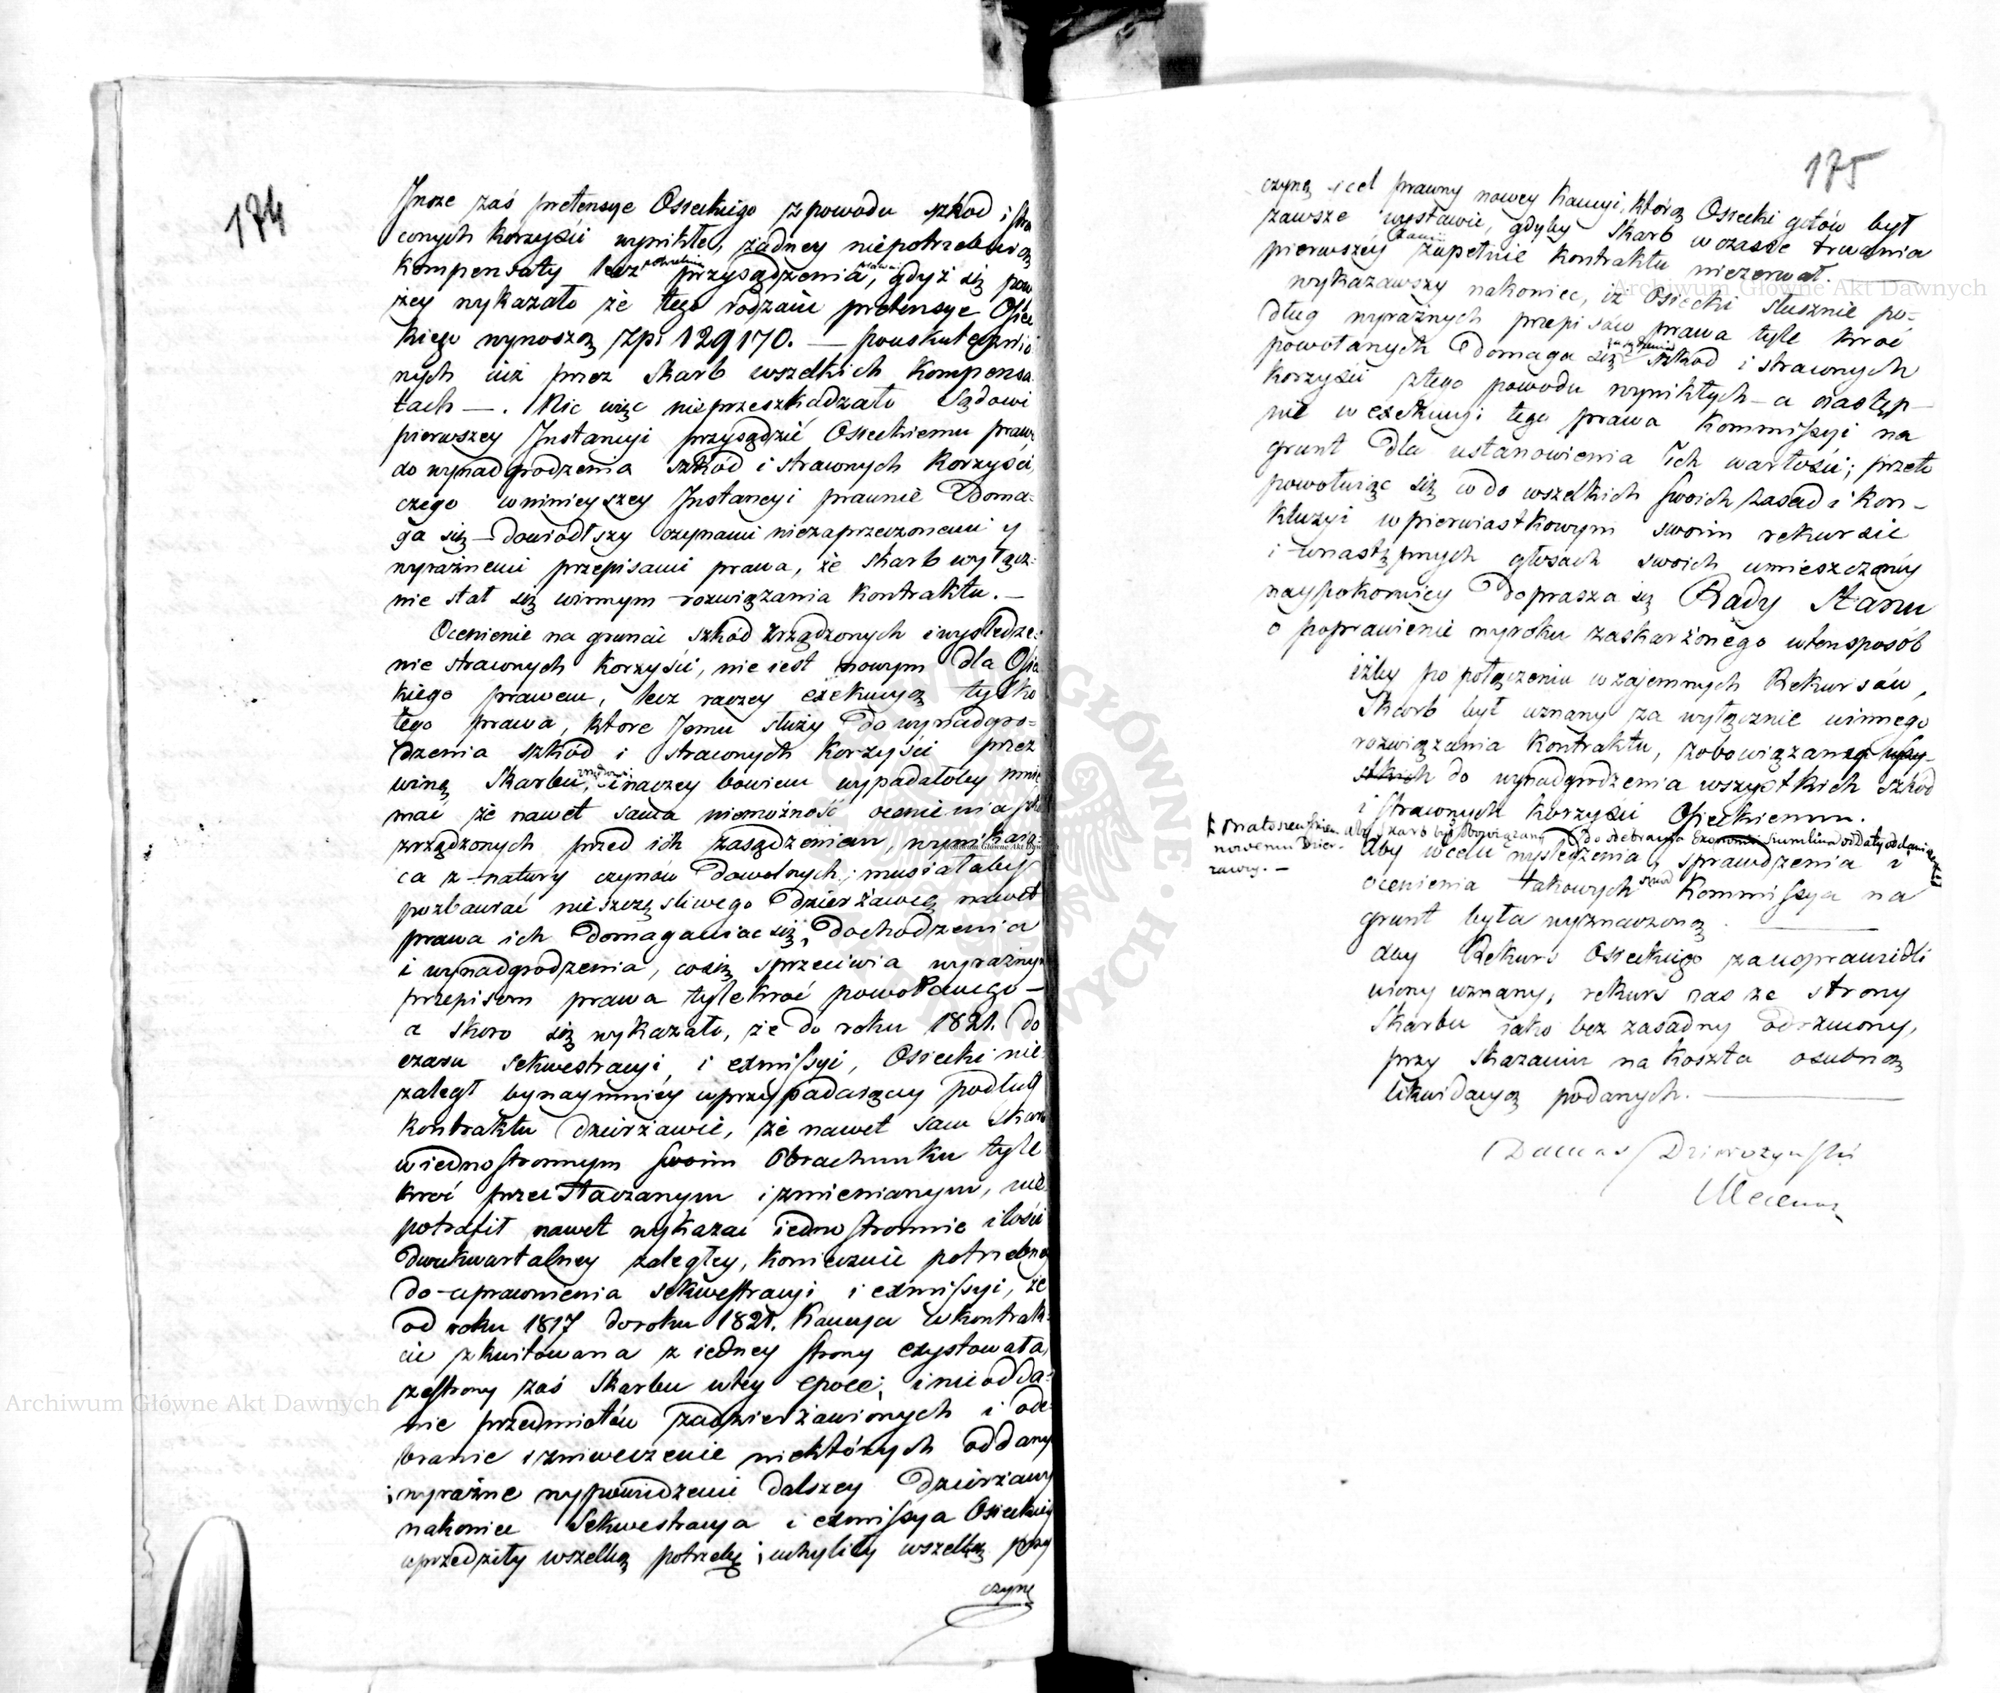 174
Insze zaś pretensye Osieckiego z powodu szkod i stra
conych korzyści wynikłe, żadney niepotrzebuią
kompensaty lecz przysądzenia, gdyż się pow
żey wykazało że tego rodzaiu pretensye Osiec
kiego wynoszą Zpł 129170. — pouskutecznio
nych iuż przez Skarb wszelkich kompensa
tach —. Nic więc nieprzeszkadzało Sądowi
pierwszey Instancyi przysądzić Osieckiemu prawo
do wynadgrodzenia szkód i straconych korzyści,
czego w ninieyszey Instancyi prawnie doma-
ga się — dowiódłszy czynami niezaprzeczonemi y
wyraźnemi przepisami prawa, że Skarb wyłącz-
nie stał się winnym rozwiązania kontraktu. —
Ocenienie na gruncie szkód zrządzonych i wyśledze-
nie straconych korzyści, nie iest nowym dla Osie
kiego prawem, lecz raczey exekucyą tylko
tego prawa, ktore Jemu służy do wynadgro-
dzenia szkód i straconych korzyści przez
winę Skarbu, inaczey bowiem wypadałoby mnie
mać że nawet sama niemożność ocenienia szkód
zrządzonych przed ich zasądzeniem, wynikaią-
ca z natury czynów dowolnych, musiałaby
pozbawiać nieszczęśliwego dzierżawcę nawet
prawa ich domagania się, dochodzenia
i wynadgrodzenia, co się sprzeciwia wyraźnym
przepisom prawa tylekroć powołanego —
a skoro się wykazało, że do roku 1821. do
czasu sekwestracyi i exmissyi, Osiecki nie
zaległ bynaymniey w przypadaiącey podług
kontraktu dzierżawie, że nawet sam Skarb
w iednostronnym swoim obrachunku tyle
kroć przeistaczanym i zmienianym, nie
potrafił nawet wykazać iednostronnie ilości
dwukwartalney zaległey, koniecznie potrzebney
do uprawnienia sekwestracyi i exmissyi, że
od roku 1817 do roku 1821. kaucya w kontrak-
cie zkwitowana z iedney strony exystowała,
ze strony zaś Skarbu w tey epoce, i nieodda-
nie przedmiotów zadzierżawionych i ode-
branie i zniweczenie niektórych oddanych
i wyraźne wypowiedzenie dalszey dzierżawy
nakoniec Sekwestracya i exmissya Osieckiego
uprzedziły wszelką potrzebę, i uchyliły wszelką przy
czynę
175
czynę i cel prawny nowey kaucyi, którą Osiecki gotów był
zawsze wystawić, gdyby Skarb w czasie trwania
pierwszey zupełnie kontraktu niezerwał.
wykazawszy nakoniec, iż Osiecki słusznie po-
dług wyraźnych przepisów prawa tyle kroć
powołanych domaga się szkód i straconych
korzyści z tego powodu wynikłych — a następ-
nie w exekucyi tego prawa Kommissyi na
grunt dla ustanowienia ich wartości; przeto
powołuiąc się co do wszelkich swoich zasad i kon-
kluzyi w pierwiastkowym swoim rekursie
i w następnych głosach swoich umieszczony
naypokorniey doprasza się Rady Stanu
o poprawienie wyroku zaskarżonego w ten sposób
iżby po połączeniu wzajemnych Rekursów,
Skarb był uznany za wyłącznie winnego
rozwiązania kontraktu, zobowiązanego
do wynadgrodzenia wszystkich szkód
i straconych korzyści Osieckiemu.
aby Skarb był obowiązany do odebrania
nowemu Dzier-
żawcy. —
aby w celu wyśledzenia, sprawdzenia i
ocenienia takowych szkód Kommissya na
grunt była wyznaczoną
aby Rekurs Osieckiego za usprawiedli
wiony uznany, rekurs zas ze strony
Skarbu iako bezzasadny odrzucony,
przy skazaniu na koszta osobną
likwidacyą podanych.
Damas Dzierożyński
Mecenas
Archiwum Główne Akt Dawnych
Archiwum Główne Akt Dawnych
Archiwum Główne Akt Dawnych